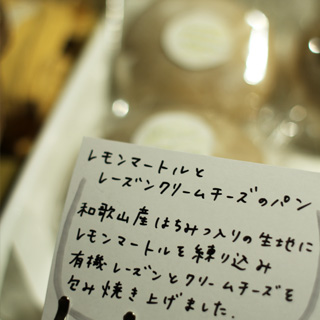 レモンマートルと
レーズンクリームチーズのパン
和歌山産はちみつ入りの生地に
レモンマートルを練り込み
有機レーズンとクリームチーズを
包み焼き上げました.